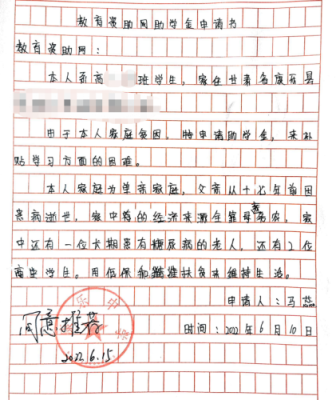 教育资助网助学金申请书
教育资助网：
本人系高 班学生，家住甘肃省
由于本人家庭贫困，特申请助学金，来补
贴学习方面的困难。
本人家庭为单亲家庭，父亲从十 年前因
患病逝世，家中的经济来源全靠母亲务农，家
中还有一位长期患有糖尿病的老人，还有2位
高中学生。用低保和 扶贫来维持生活。
申请人：马蕊
同意推荐
时间：2022年6月10日
2022.6.15
中学